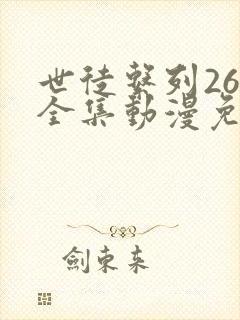 世徒繫列26
全集動漫免
劍東來